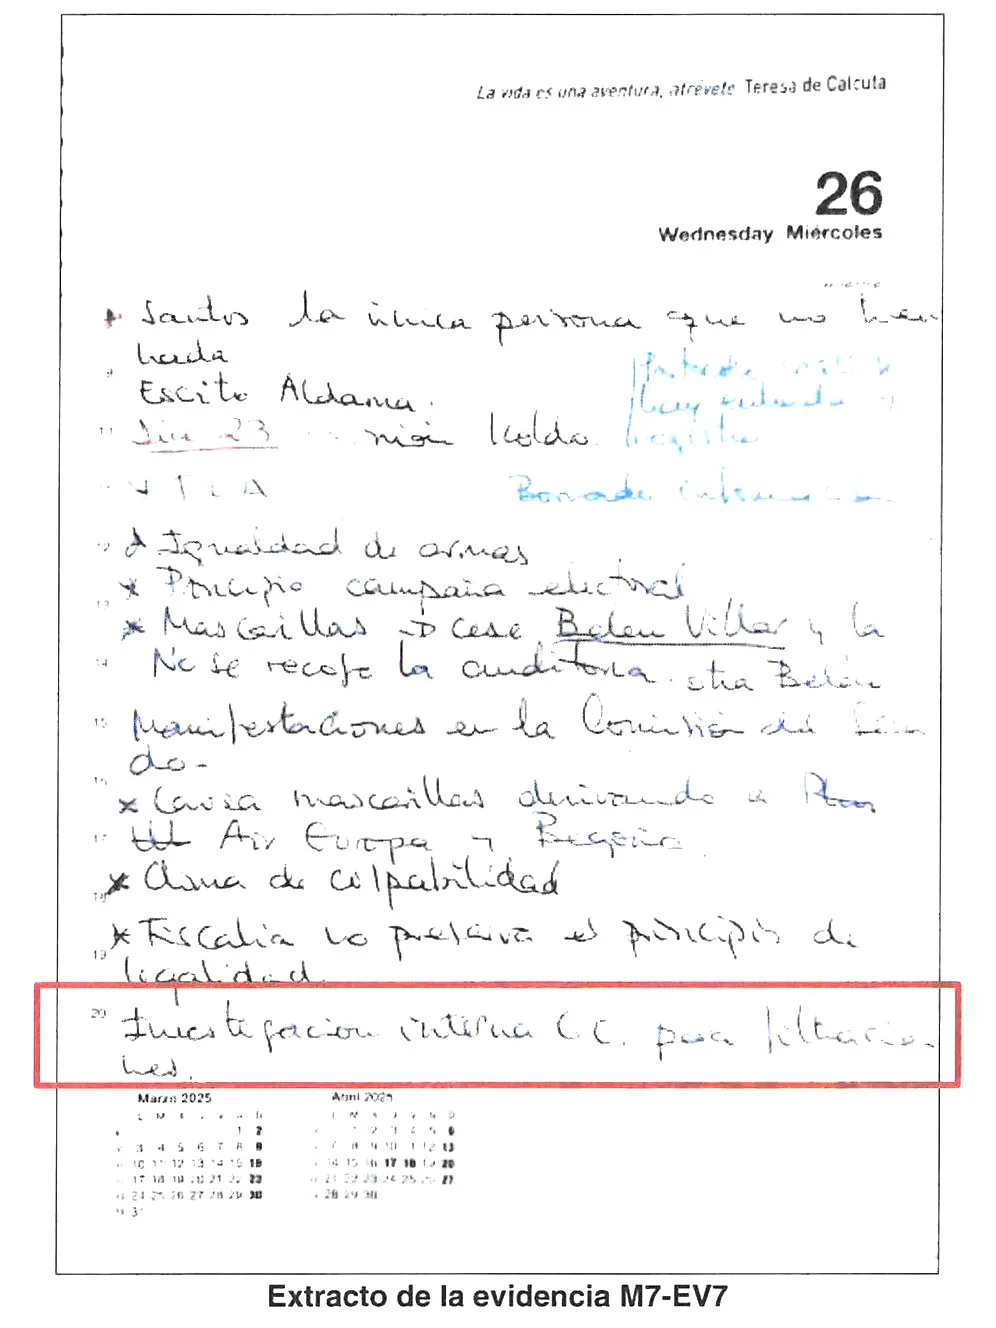 La vida es una aventura, atrévete Teresa de Calcuta
26
Wednesday Miércoles
Santos la única persona que no han
hada
Escito Aldama.
Día 23 Koldo.
hay entrada y
registro
Borrado
Igualdad de armas
* Principio campaña electoral
* Mascarillas → cese Belen Villar y la
No se recoje la auditoria. otra Belén
Manifestaciones en la Comisión del Sena
do-
* Causa mascarillas derivando a Plus
Air Europa y Begoña
* Clima de culpabilidad
* Fiscalia no preserva el principio de
legalidad.
20 Investigacion interna G.C. para filtracio-
nes.
Marzo 2025 Abril 2025
L M D
1 2 1 2 3 4 5 6
3 4 5 6 7 8 9 7 8 9 10 11 12 13
10 11 12 13 14 15 16 14 15 16 17 18 19 20
17 18 19 20 21 22 23 21 22 23 24 25 26 27
24 25 26 27 28 29 30 28 29 30
31
Extracto de la evidencia M7-EV7